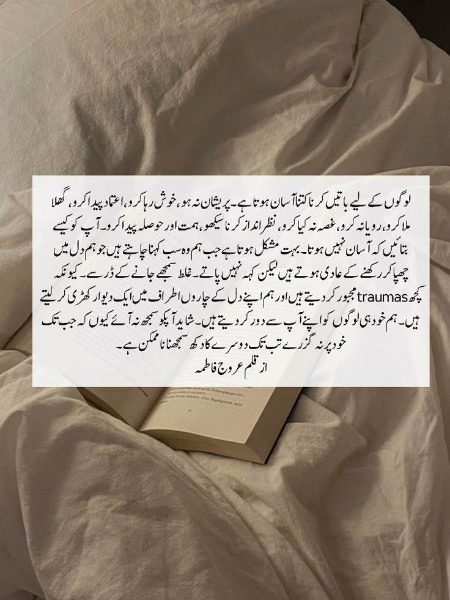 لوگوں کے لیے باتیں کرنا کتنا آسان ہوتا ہے۔ پریشان نہ ہو، خوش رہا کرو، گھلا
ملا کرو، رویا نہ کرو، غصہ نہ کیا کرو، نظر انداز کرنا سیکھو، ہمت اور حوصلہ پیدا کرو۔ آپ کو کیسے
بتائیں کہ آسان نہیں ہوتا۔ بہت مشکل ہوتا ہے جب ہم وہ سب کہنا چاہتے ہیں جو ہم دل میں
چھپا کر رکھنے کے عادی ہوتے ہیں لیکن کہہ نہیں پاتے۔ غلط سمجھے جانے کے ڈر سے۔ کیونکہ
کچھ traumas مجبور کر دیتے ہیں اور ہم اپنے دل کے چاروں اطراف میں ایک دیوار کھڑی کر لیتے
ہیں۔ ہم خود ہی لوگوں کو اپنے آپ سے دور کر دیتے ہیں۔ شاید آپکو سمجھ نہ آئے کیوں کہ جب تک
خود پر نہ گزرے تب تک دوسرے کا دکھ سمجھنا ناممکن ہے۔
از قلم عروج فاطمہ